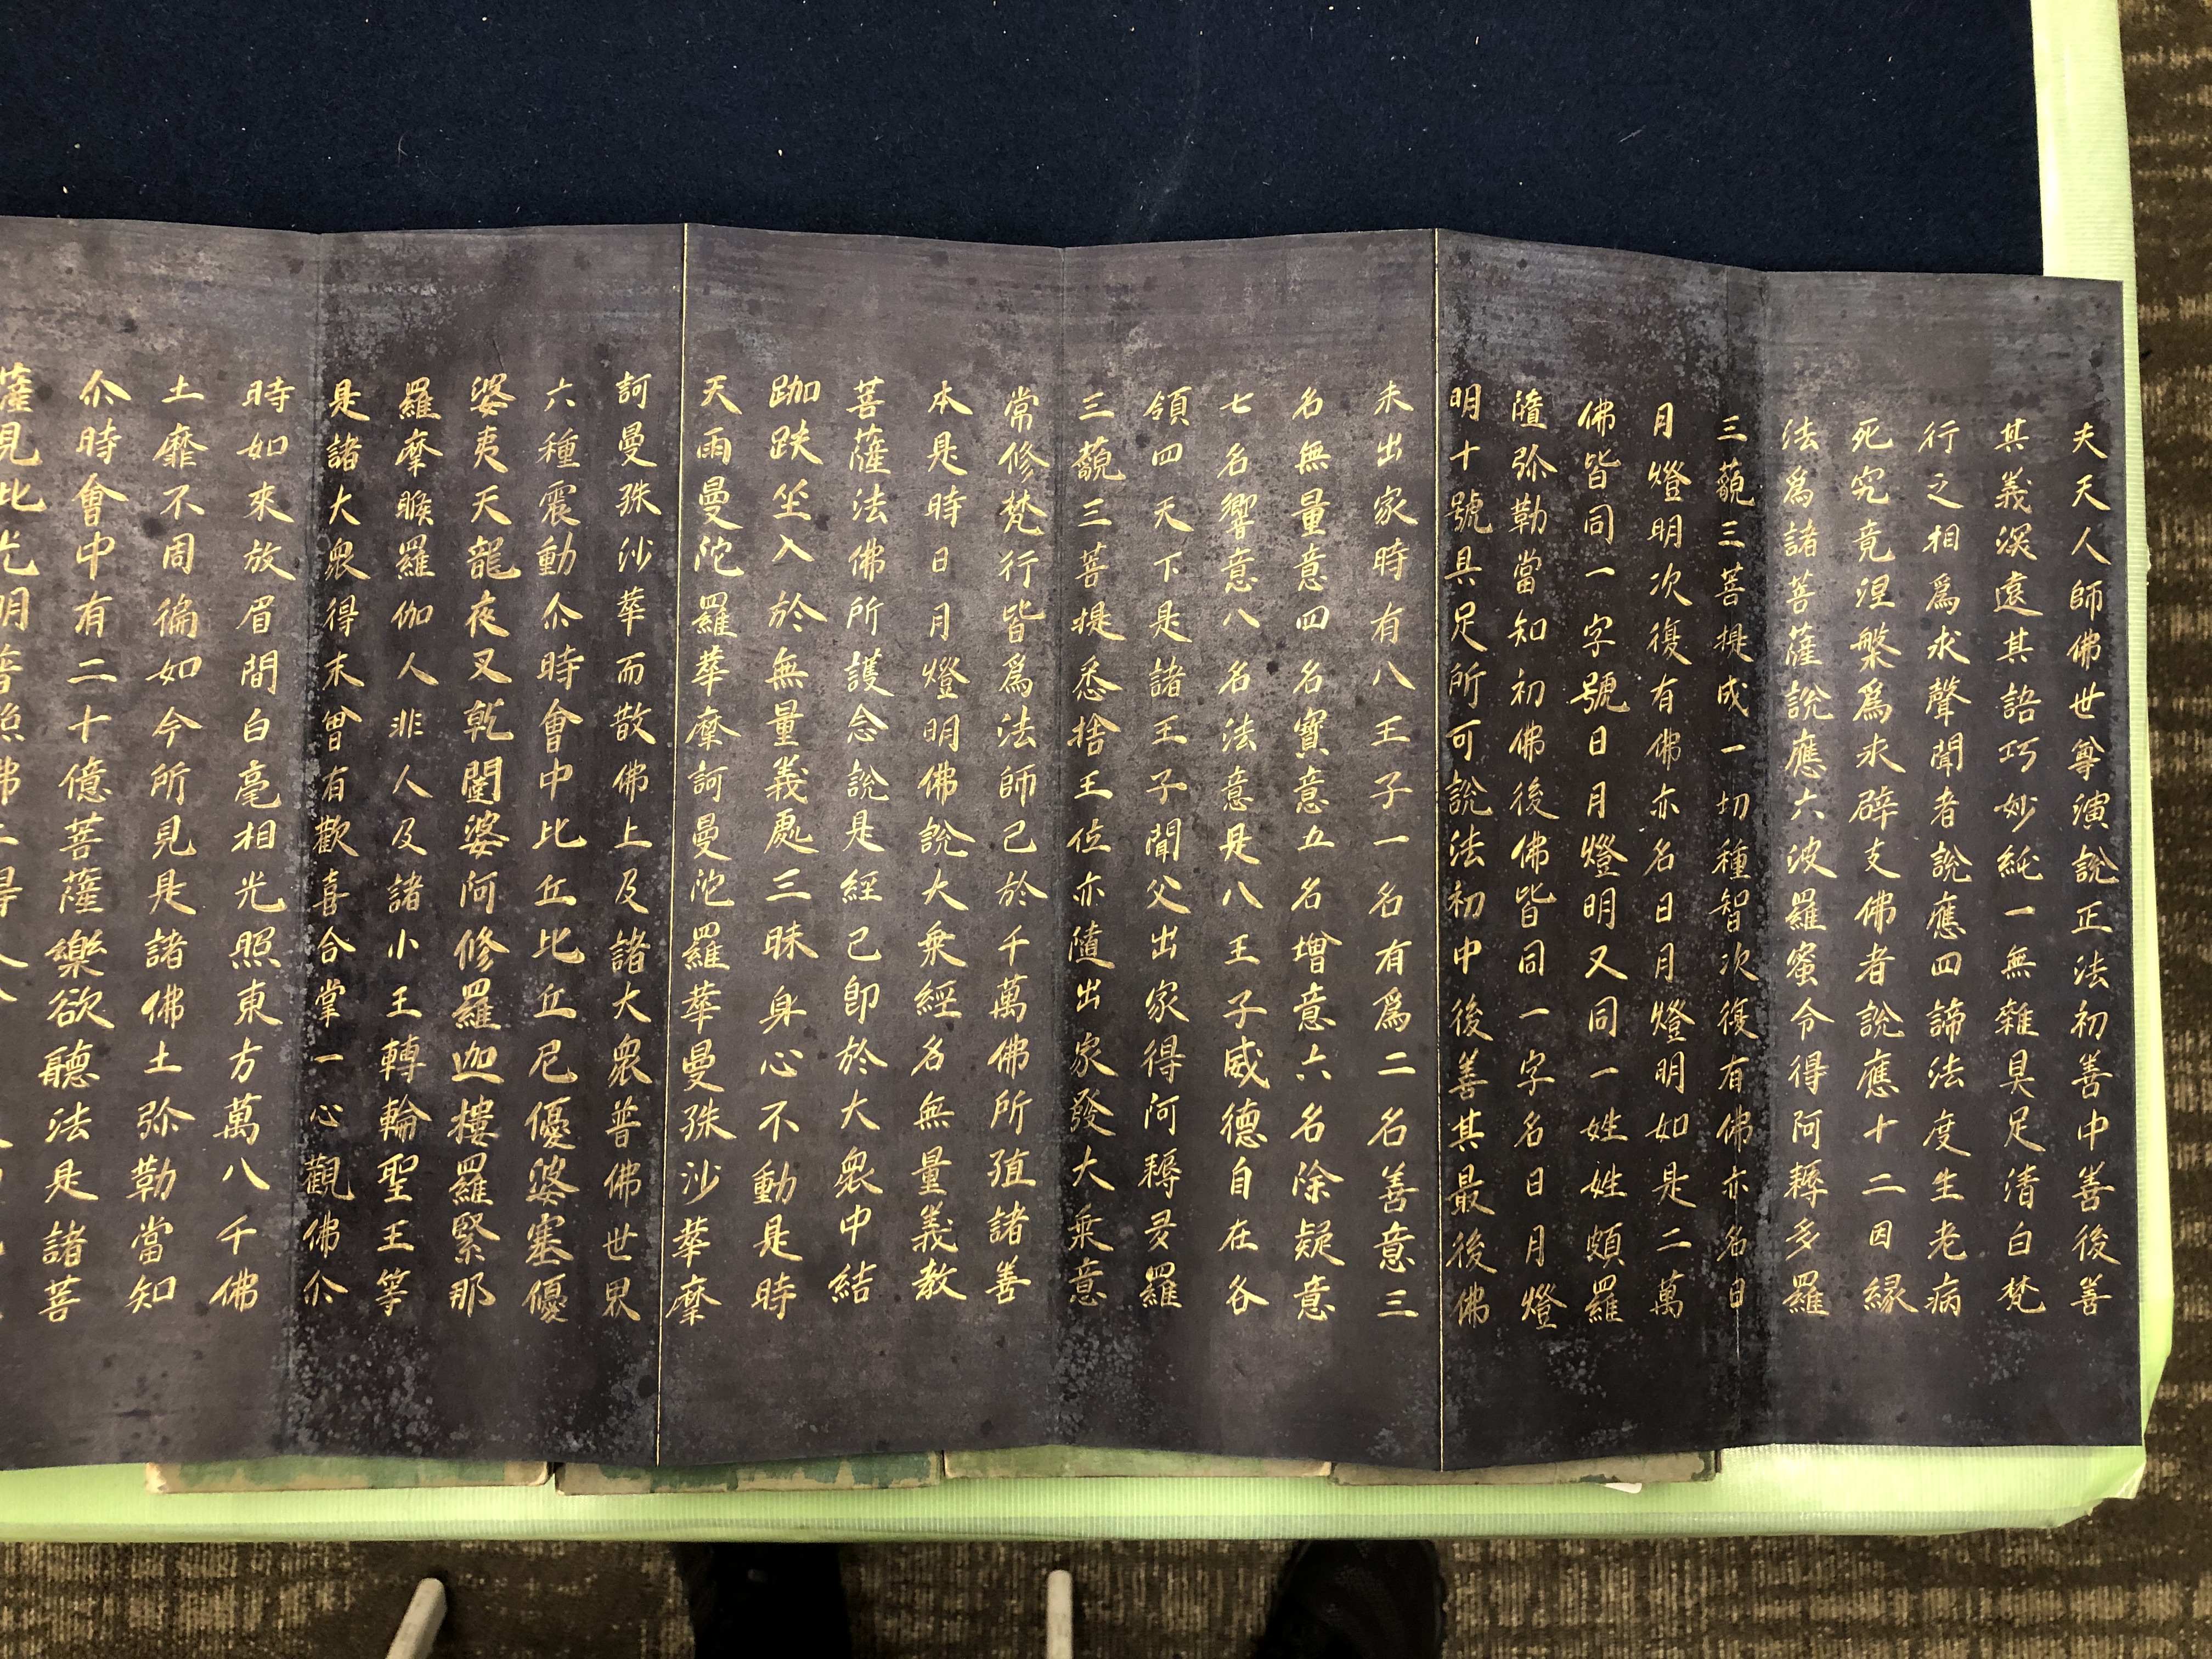 夫天人師佛世尊演說正法初善中善後善
其義深遠其語巧妙純一無雜具足清白梵
行之相爲求聲聞者說應四諦法度生老病
死究竟涅槃爲求辟支佛者說應十二因緣
法爲諸菩薩說應六波羅蜜令得阿耨多羅
三藐三菩提成一切種智次復有佛亦名日
月燈明次復有佛亦名日月燈明如是二萬
佛皆同一字號日月燈明又同一姓姓頗羅
隨弥勒當知初佛後佛皆同一字名日月燈
明十號具足所可說法初中後善其最後佛
未出家時有八王子一名有爲二名善意三
名無量意四名寶意五名增意六名除疑意
七名響意八名法意是八王子威德自在各
領四天下是諸王子聞父出家得阿耨多羅
三藐三菩提悉捨王位亦隨出家發大乘意
常修梵行皆爲法師已於千萬佛所殖諸善
本是時日月燈明佛說大乘經名無量義教
菩薩法佛所護念說是經已卽於大衆中結
跏趺坐入於無量義處三昧身心不動是時
天雨曼陀羅華摩訶曼陀羅華曼殊沙華摩
訶曼殊沙華而散佛上及諸大衆普佛世界
六種震動尒時會中比丘比丘尼優婆塞優
婆夷天龍夜叉乾闥婆阿修羅迦樓羅緊那
羅摩睺羅伽人非人及諸小王轉輪聖王等
是諸大衆得未曾有歡喜合掌一心觀佛尒
時如來放眉間白毫相光照東方萬八千佛
土靡不周徧如今所見是諸佛土弥勒當知
尒時會中有二十億菩薩樂欲聽法是諸菩
薩見此光明普照佛土得